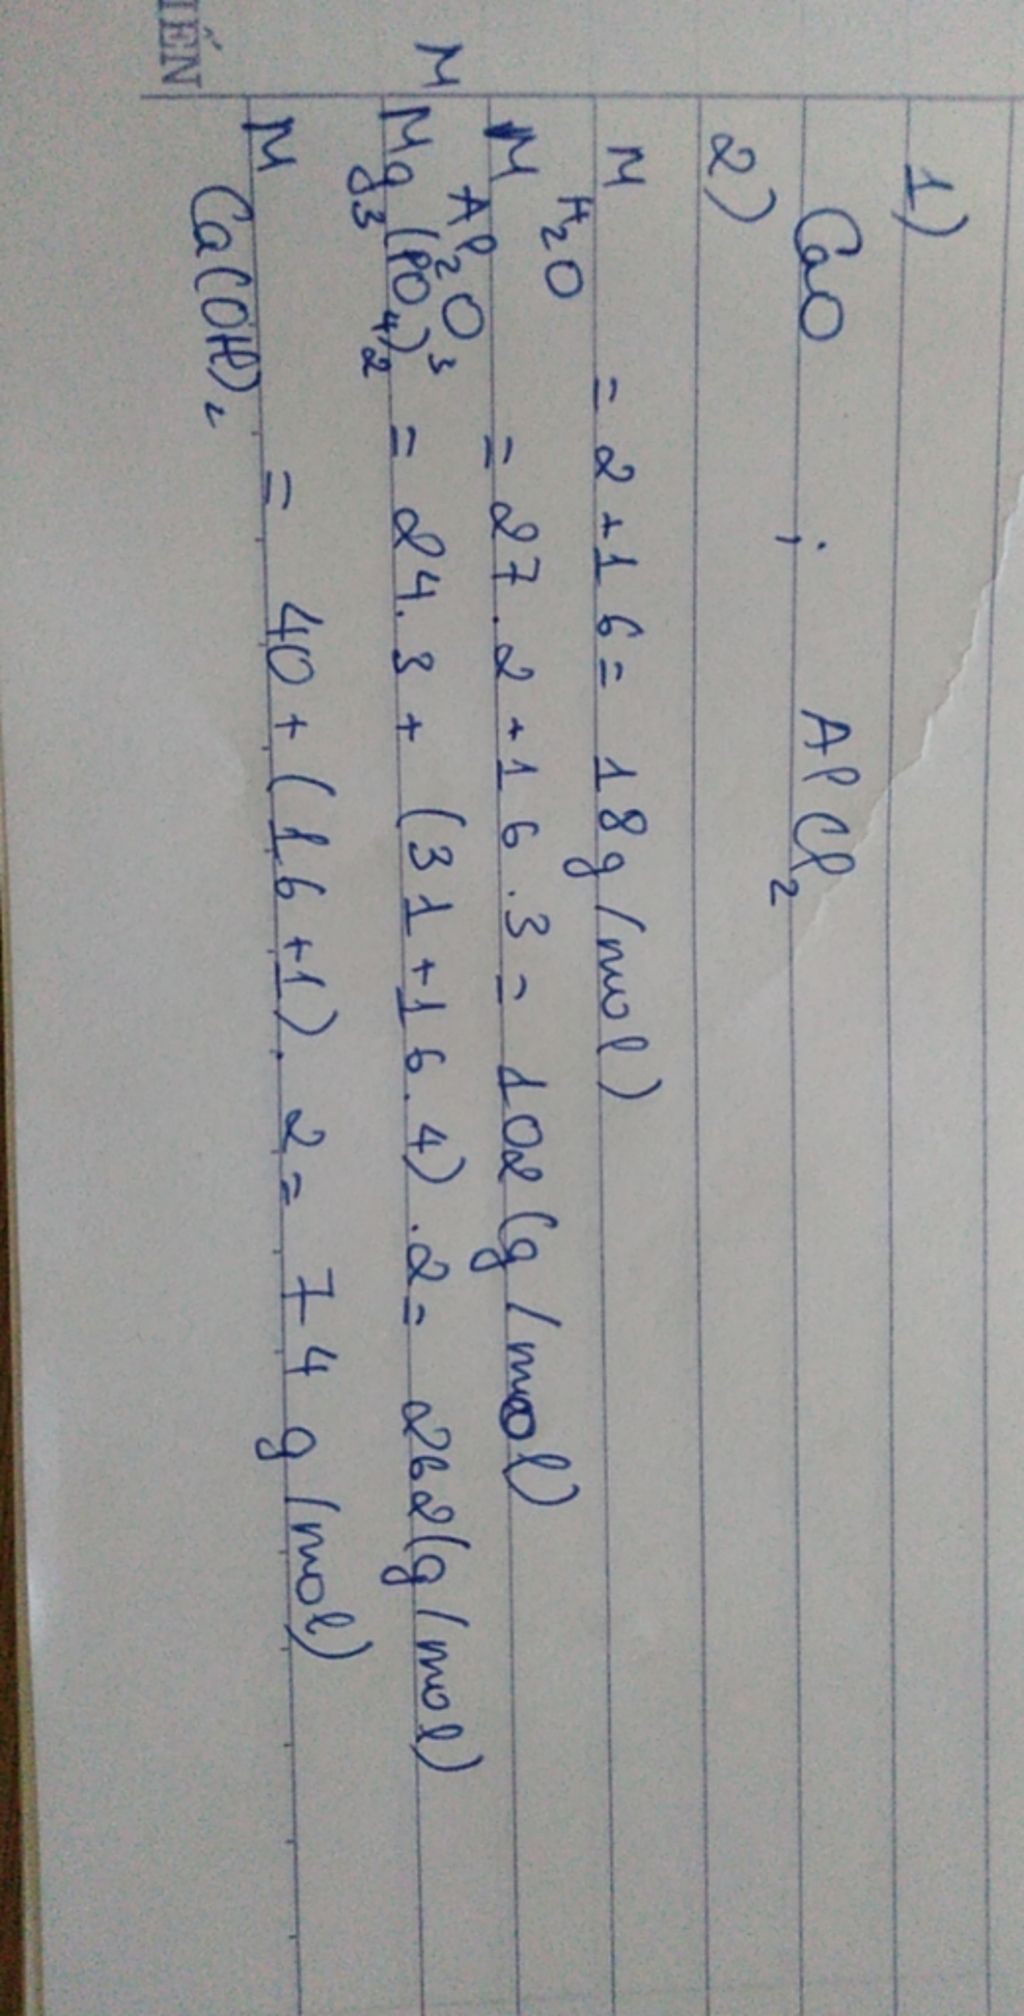 1)
CaO ; AlCl₂
2)
M H₂O = 2 + 16 = 18g/mol)
M Al₂O₃ = 27.2 + 16.3 = 102 (g/mol)
M Mg3 (PO₄)₂ = 24.3 + (31+16.4).2 = 262(g/mol)
M Ca(OH)₂ = 40 + (16+1).2 = 74 g/mol)
IẾN